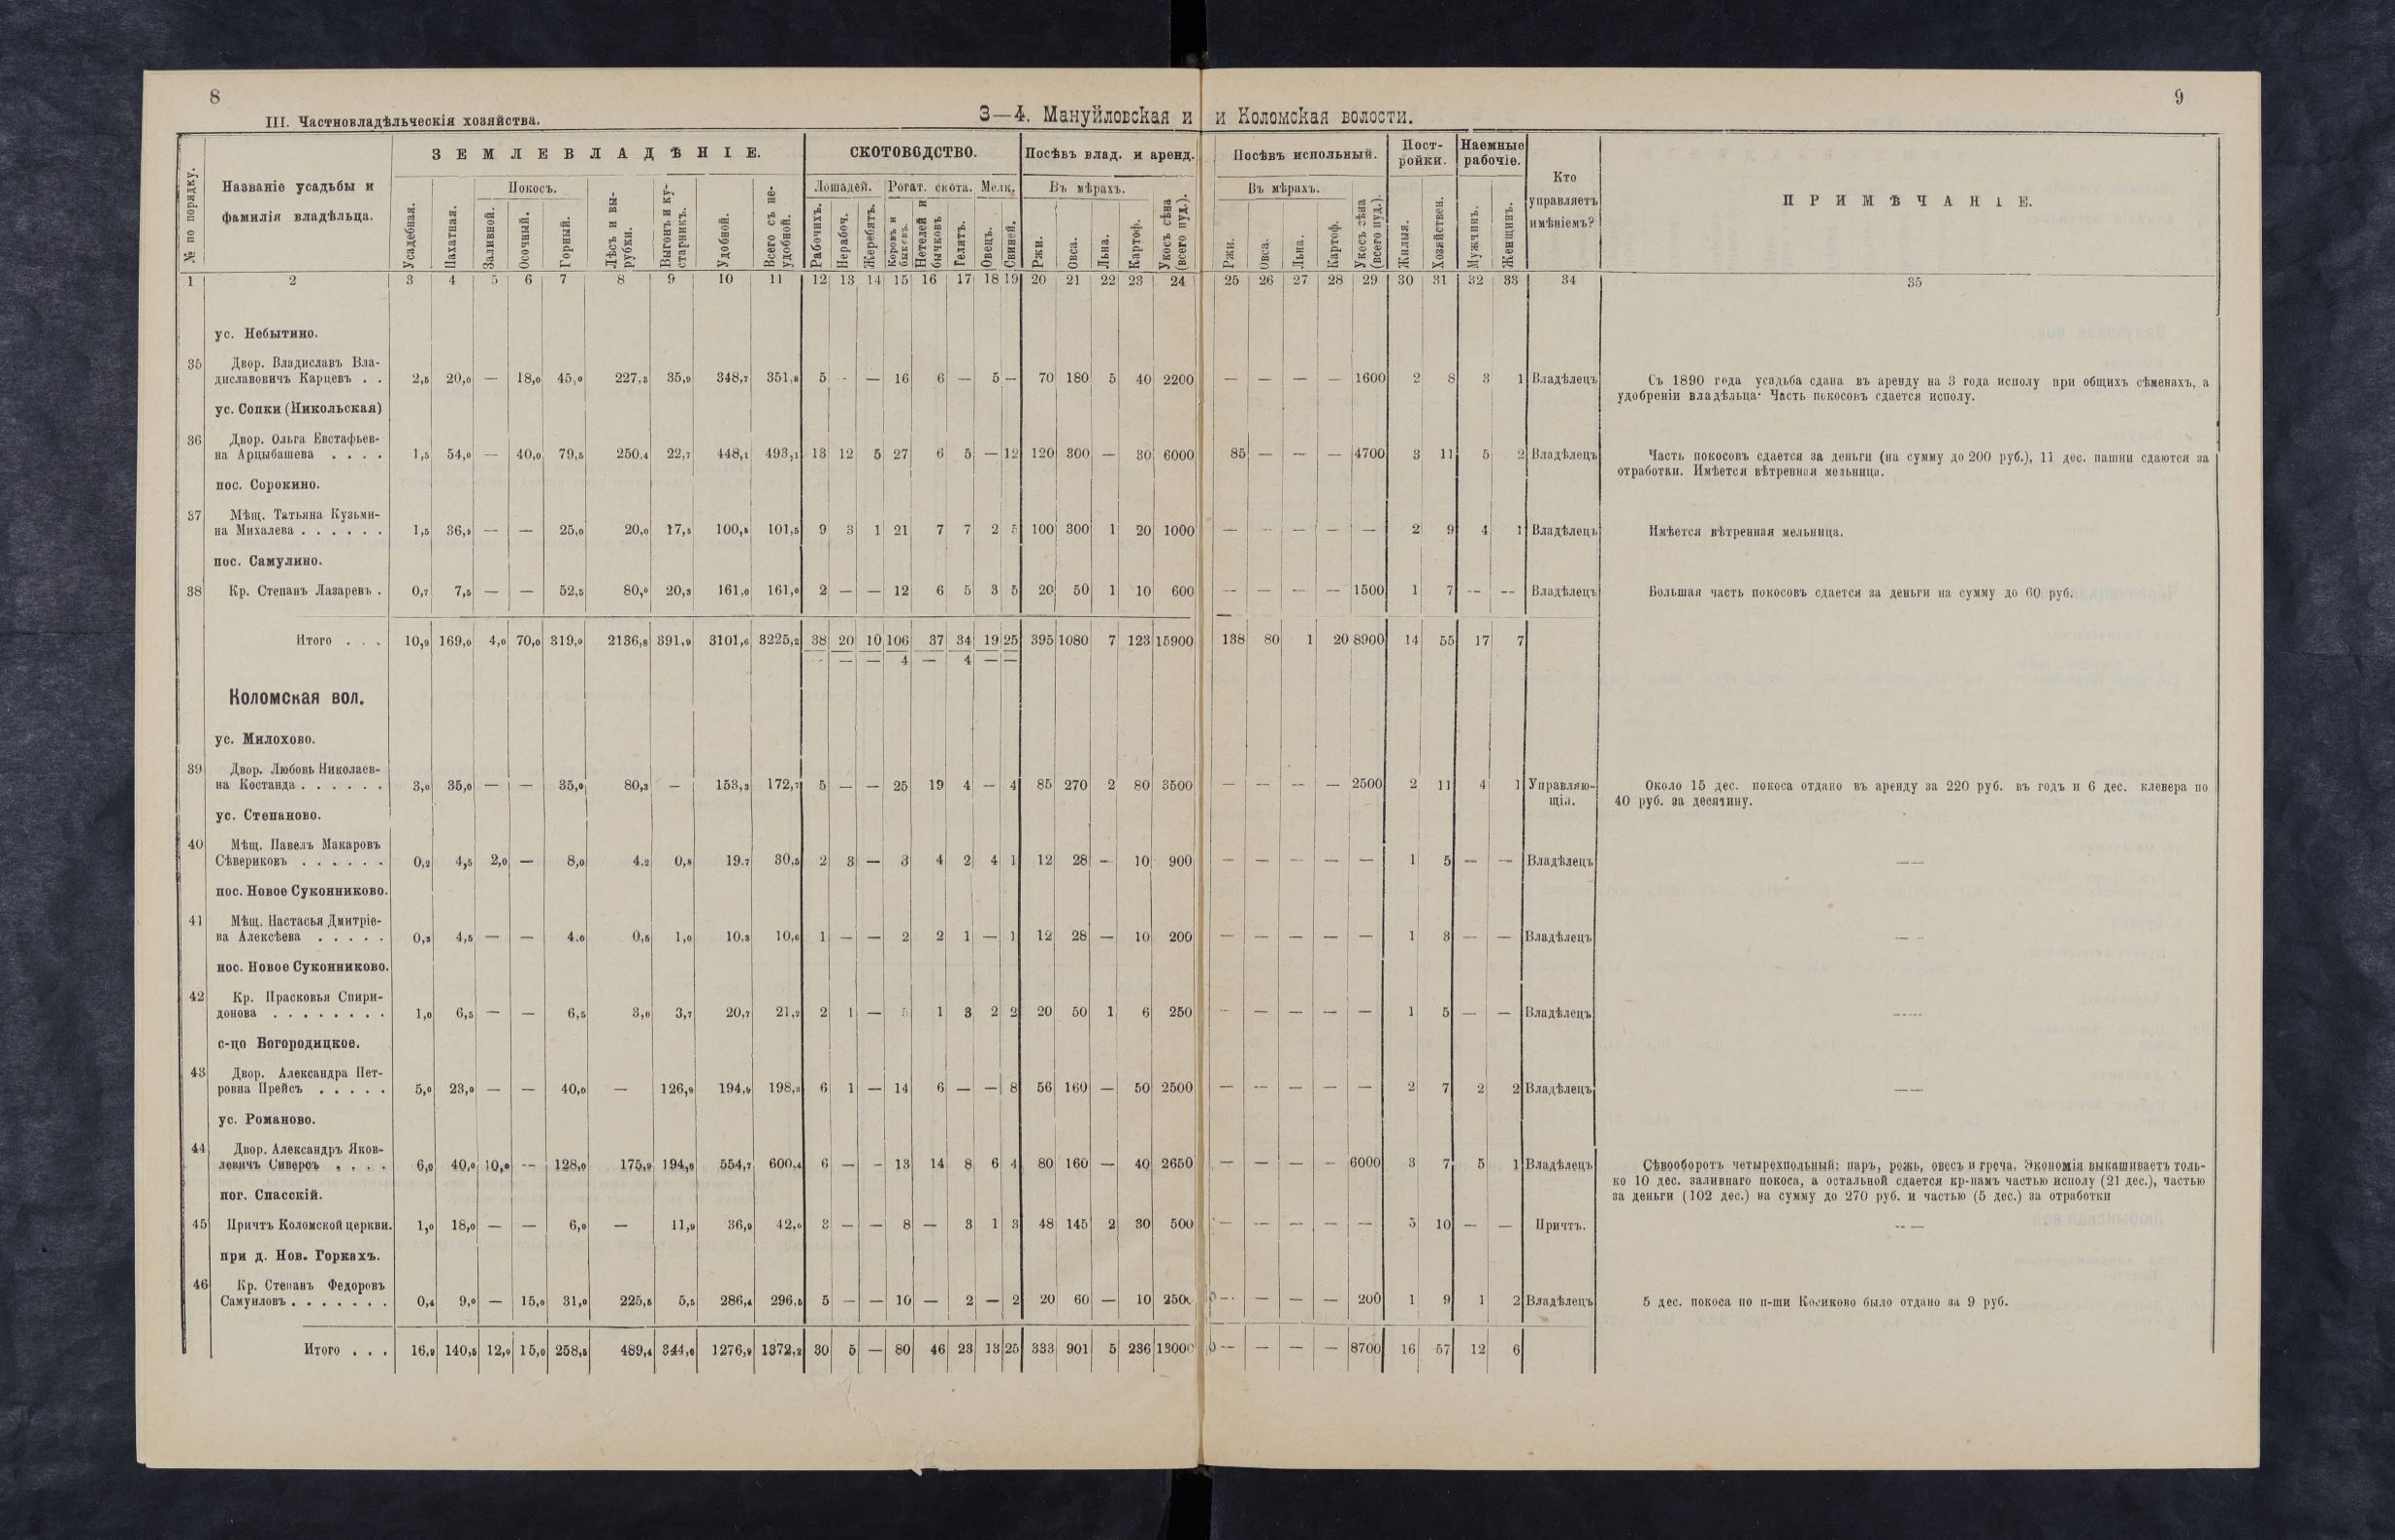 8
III. Частновладѣльческія хозяйства.
3—4. Мануйловская и
и Коломская волости.
9
№ по порядку.
Названіе усадьбы и
фамилія владѣльца.
ЗЕМЛЕВЛАДѢНІЕ.
Усадебная.
Пахатная.
Покосъ.
Заливной.
Осочный.
Горный.
Лѣсъ и вы-
рубки.
Выгонъ и ку-
старникъ.
Удобной.
Всего съ не-
удобной.
СКОТОВОДСТВО.
Лошадей.
Рабочихъ.
Нерабоч.
Жеребятъ.
Рогат. скота.
Коровъ и
быковъ.
Нетелей и
бычковъ
Телятъ.
Мелк.
Овецъ.
Свиней.
Посѣвъ влад. и аренд.
Въ мѣрахъ.
Ржи.
Овса.
Льна.
Картоф.
Укосъ сѣна
(всего пуд.).
Посѣвъ испольный.
Въ мѣрахъ.
Ржи.
Овса.
Льна.
Картоф.
Укосъ сѣна
(всего пуд.).
Пост-
ройки.
Жилыя.
Хозяйствен.
Наемные
рабочіе.
Мужчинъ.
Женщинъ.
Кто
управляетъ
имѣніемъ?
ПРИМѢЧАНІЕ.
1 2 3 4 5 6 7 8 9 10 11 12 13 14 15 16 17 18 19 20 21 22 23 24 25 26 27 28 29 30 31 32 33 34 35
ус. Небытино.
35 Двор. Владиславъ Вла-
диславовичъ Карцевъ . . 2,5 20,0 — 18,0 45,0 227,3 35,9 348,7 351,8 5 - — 16 6 — 5 — 70 180 5 40 2200 — — — — 1600 2 8 3 1 Владѣлецъ Съ 1890 года усадьба сдана въ аренду на 3 года исполу при общихъ сѣменахъ, а
удобреніи владѣльца· Часть покосовъ сдается исполу.
ус. Сопки (Никольская)
36 Двор. Ольга Евстафьев-
на Арцыбашева . . . . 1,5 54,0 — 40,0 79,5 250,4 22,7 448,1 493,1 13 12 5 27 6 5 — 12 120 300 — 30 6000 85 — — — 4700 3 11 5 2 Владѣлецъ Часть покосовъ сдается за деньги (на сумму до 200 руб.), 11 дес. пашни сдаются за
отработки. Имѣется вѣтренная мельница.
пос. Сорокино.
37 Мѣщ. Татьяна Кузьми-
на Михалева . . . . . . 1,5 36,5 — — 25,0 20,0 17,5 100,5 101,5 9 3 1 21 7 7 2 5 100 300 1 20 1000 — — — — — 2 9 4 1 Владѣлецъ Имѣется вѣтренная мельница.
пос. Самулино.
38 Кр. Степанъ Лазаревъ . 0,7 7,5 — — 52,5 80,0 20,3 161,0 161,0 2 — — 12 6 5 3 5 20 50 1 10 600 — — — — 1500 1 7 — — Владѣлецъ Большая часть покосовъ сдается за деньги на сумму до 60 руб.
Итого . . . 10,9 169,0 4,0 70,0 319,0 2136,8 391,9 3101,6 3225,2 38 20 10 106 37 34 19 25 395 1080 7 123 15900 138 80 1 20 8900 14 55 17 7
— — — 4 — 4 — —
Коломская вол.
ус. Милохово.
39 Двор. Любовь Николаев-
на Костанда . . . . . . 3,0 35,0 — — 35,0 80,3 — 153,3 172,7 5 — — 25 19 4 — 4 85 270 2 80 3500 — — — — 2500 2 11 4 1 Управляю-
щій. Около 15 дес. покоса отдано въ аренду за 220 руб. въ годъ и 6 дес. клевера по
40 руб. за десятину.
ус. Степаново.
40 Мѣщ. Павелъ Макаровъ
Сѣвериковъ . . . . . . 0,2 4,5 2,0 — 8,0 4,2 0,8 19,7 30,5 2 3 — 3 4 2 4 1 12 28 — 10 900 — — — — — 1 5 — — Владѣлецъ — —
пос. Новое Суконниково.
41 Мѣщ. Настасья Дмитріе-
ва Алексѣева . . . . . 0,3 4,5 — — 4,0 0,5 1,0 10,3 10,6 1 — — 2 2 1 — 1 12 28 — 10 200 — — — — — 1 3 — — Владѣлецъ — —
пос. Новое Суконниково.
42 Кр. Прасковья Спири-
донова . . . . . . . . 1,0 6,5 — — 6,5 3,0 3,7 20,7 21,2 2 1 — 5 1 3 2 2 20 50 1 6 250 — — — — — 1 5 — — Владѣлецъ — —
с-цо Богородицкое.
43 Двор. Александра Пет-
ровна Прейсъ . . . . . 5,0 23,0 — — 40,0 — 126,9 194,9 198,3 6 1 — 14 6 — — 8 56 160 — 50 2500 — — — — — 2 7 2 2 Владѣлецъ — —
ус. Романово.
44 Двор. Александръ Яков-
левичъ Сиверсъ . . . . 6,0 40,0 10,0 — 128,0 175,9 194,8 554,7 600,4 6 — - 13 14 8 6 4 80 160 — 40 2650 — — — — 6000 3 7 5 1 Владѣлецъ Сѣвооборотъ четырехпольный: паръ, рожь, овесъ и греча. Экономія выкашиваетъ толь-
ко 10 дес. заливнаго покоса, а остальной сдается кр-намъ частью исполу (21 дес.), частью
за деньги (102 дес.) на сумму до 270 руб. и частью (5 дес.) за отработки
пог. Спасскій.
45 Причтъ Коломской церкви. 1,0 18,0 — — 6,0 — 11,9 36,9 42,0 3 — — 8 — 3 1 3 48 145 2 30 500 — — — — — 5 10 — — Причтъ. — —
при д. Нов. Горкахъ.
46 Кр. Степанъ Федоровъ
Самуиловъ . . . . . . . 0,4 9,0 — 15,0 31,0 225,5 5,5 286,4 296,5 5 — — 10 — 2 — 2 20 60 — 10 2500 — — — — 200 1 9 1 2 Владѣлецъ 5 дес. покоса по п-ши Косиково было отдано за 9 руб.
Итого . . . 16,9 140,5 12,0 15,0 258,5 489,4 344,6 1276,9 1372,2 30 5 — 80 46 23 13 25 333 901 5 236 13000 — — — — 8700 16 57 12 6